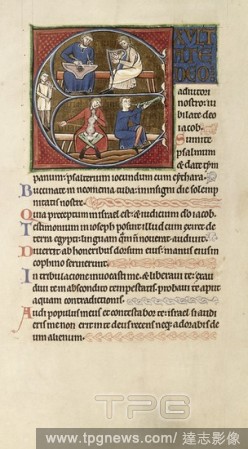 EXULT
ATE
DEO
adiutori
nostro: iu
bilate deo
iacob.
Sumite
psalmum
& date tym
panum: psalterium iocundum cum cythara.
Buccinate in neomenia tuba: in insigni die solemp
nitatis nostre.
Quia preceptum in israel est: & iudicium deo iacob.
Testimonium in ioseph posuit illud cum exiret de
terra egypti: linguam quam non noverat audivit.
Divertit ab honeribus dorsum eius: manus eius in
cophino servierunt.
In tribulatione invocasti me & liberavi te: exau
divi te in abscondito tempestatis. probavi te aput
aquam contradictionis.
Audi populus meus et contestabor te: israel si audi
eris me non erit in te deus recens neque adorabis de
um alienum.
TPG
www.tpgnews.com/達志影像